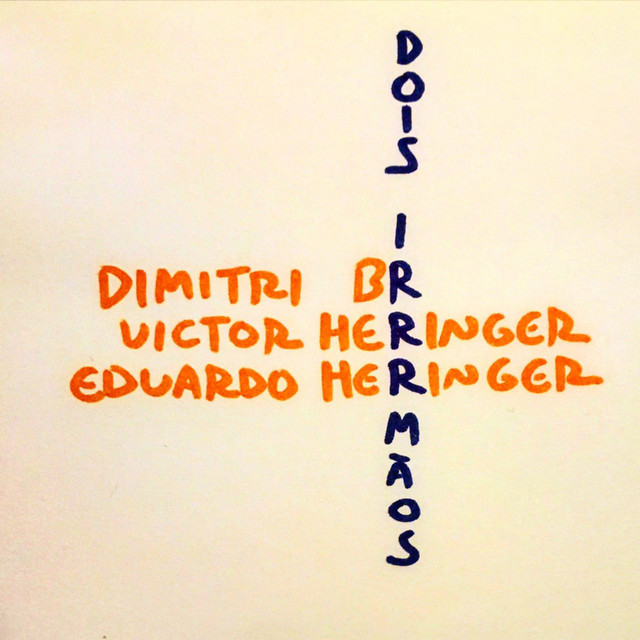 DOIS IRRRMÃOS
DIMITRI BR
VICTOR HERINGER
EDUARDO HERINGER